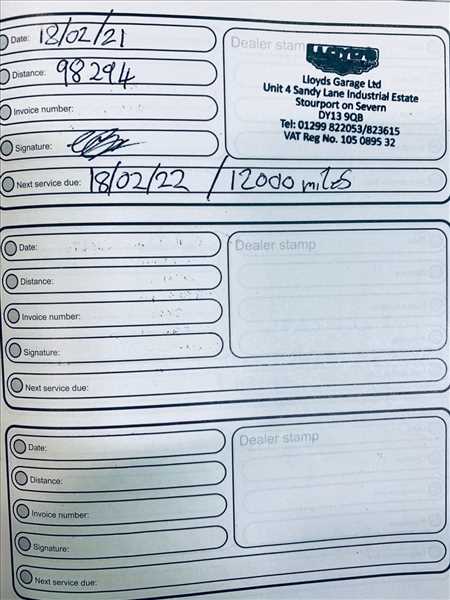 Date: 18/02/21
Distance: 98294
Invoice number:
Signature:
Next service due: 18/02/22 / 12000 miles
Dealer stamp
LLOYDS
Lloyds Garage Ltd
Unit 4 Sandy Lane Industrial Estate
Stourport on Severn
DY13 9QB
Tel: 01299 822053/823615
VAT Reg No. 105 0895 32
Date:
Distance:
Invoice number:
Signature:
Next service due:
Dealer stamp
Date:
Distance:
Invoice number:
Signature:
Next service due:
Dealer stamp